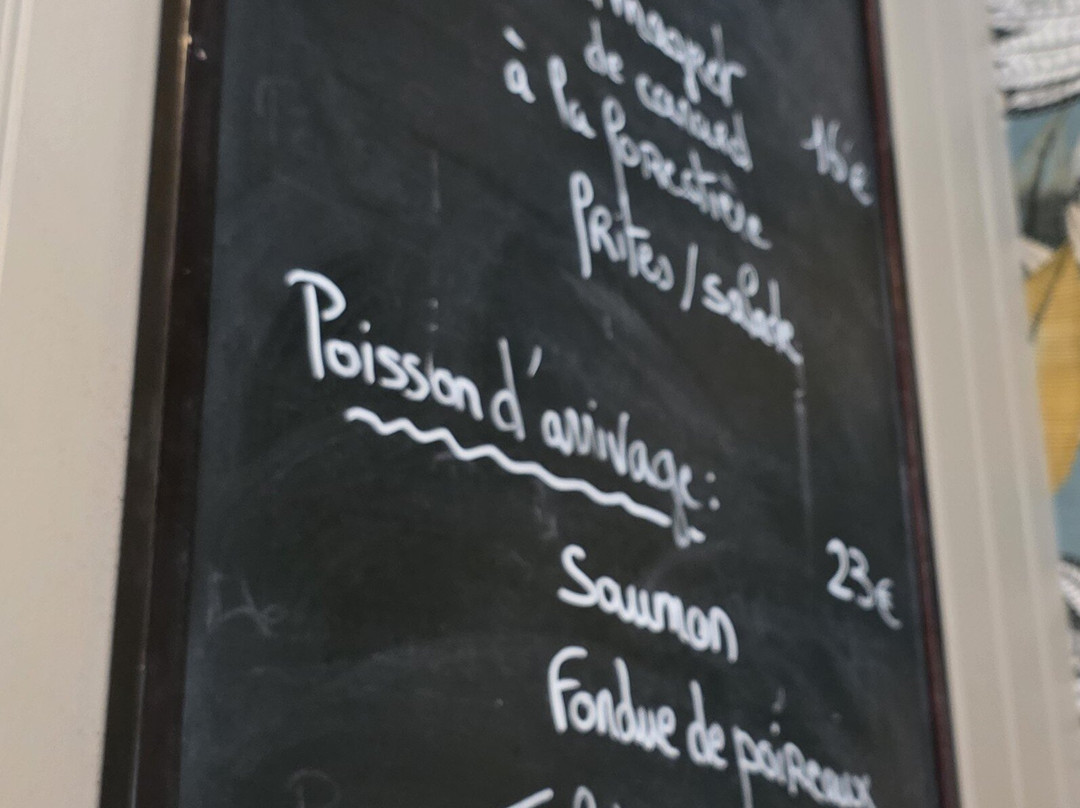 magret
de canard
à la forestière 16€
frites / salade
Poisson d'arrivage :
Saumon 23€
Fondue de poireaux